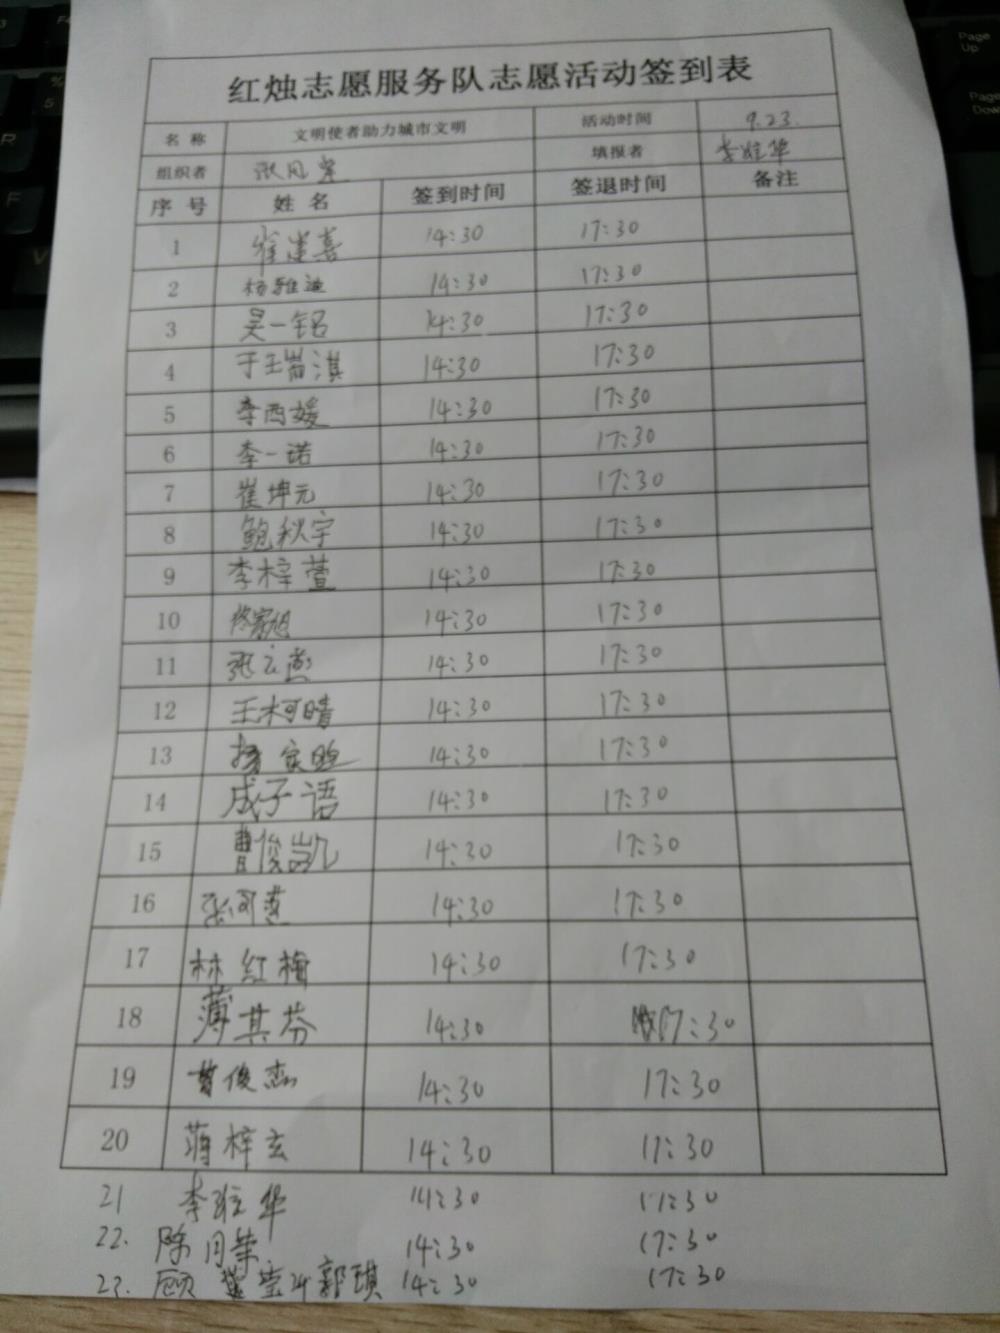 红烛志愿服务队志愿活动签到表
名称 文明使者助力城市文明 活动时间 9.23.
组织者 张凤 填报者 李 华
序号 姓名 签到时间 签退时间 备注
1 崔建喜 14:30 17:30
2 杨雅迪 14:30 17:30
3 吴一铭 14:30 17:30
4 于玉淇 14:30 17:30
5 李西媛 14:30 17:30
6 李一诺 14:30 17:30
7 崔坤元 14:30 17:30
8 鲍秋宇 14:30 17:30
9 李梓萱 14:30 17:30
10 佟家旭 14:30 17:30
11 张 14:30 17:30
12 王柯晴 14:30 17:30
13 14:30 17:30
14 成子语 14:30 17:30
15 曹俊凯 14:30 17:30
16 张 14:30 17:30
17 林红梅 14:30 17:30
18 薄其芬 14:30 17:30
19 曹俊杰 14:30 17:30
20 蒋梓玄 14:30 17:30
21 李 华 14:30 17:30
22. 陈月荣 14:30 17:30
23. 顾 郭琪 14:30 17:30